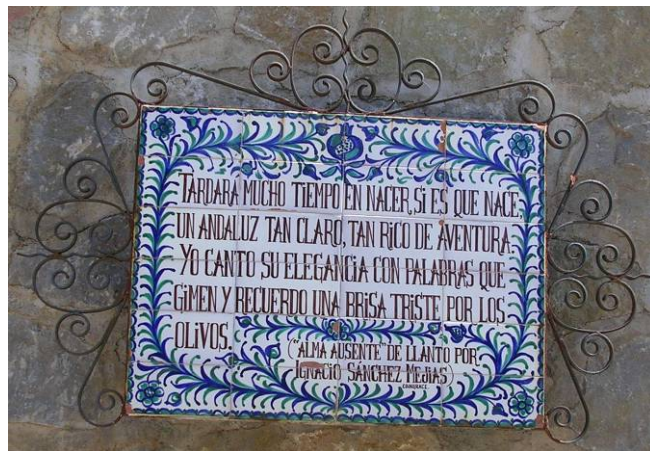 TARDARA MUCHO TiEMPO EN NACER, Si ES QUE NACE,
UN ANDALUZ TAN CLARO, TAN RiCO DE AVENTURA.
YO CANTO SU ELEGANCiA CON PALABRAS QUE
GiMEN Y RECUERDO UNA BRiSA TRiSTE POR LOS
OLiVOS.
("ALMA AUSENTE" DE LLANTO POR
IGNACiO SÁNCHEZ MEJiAS)